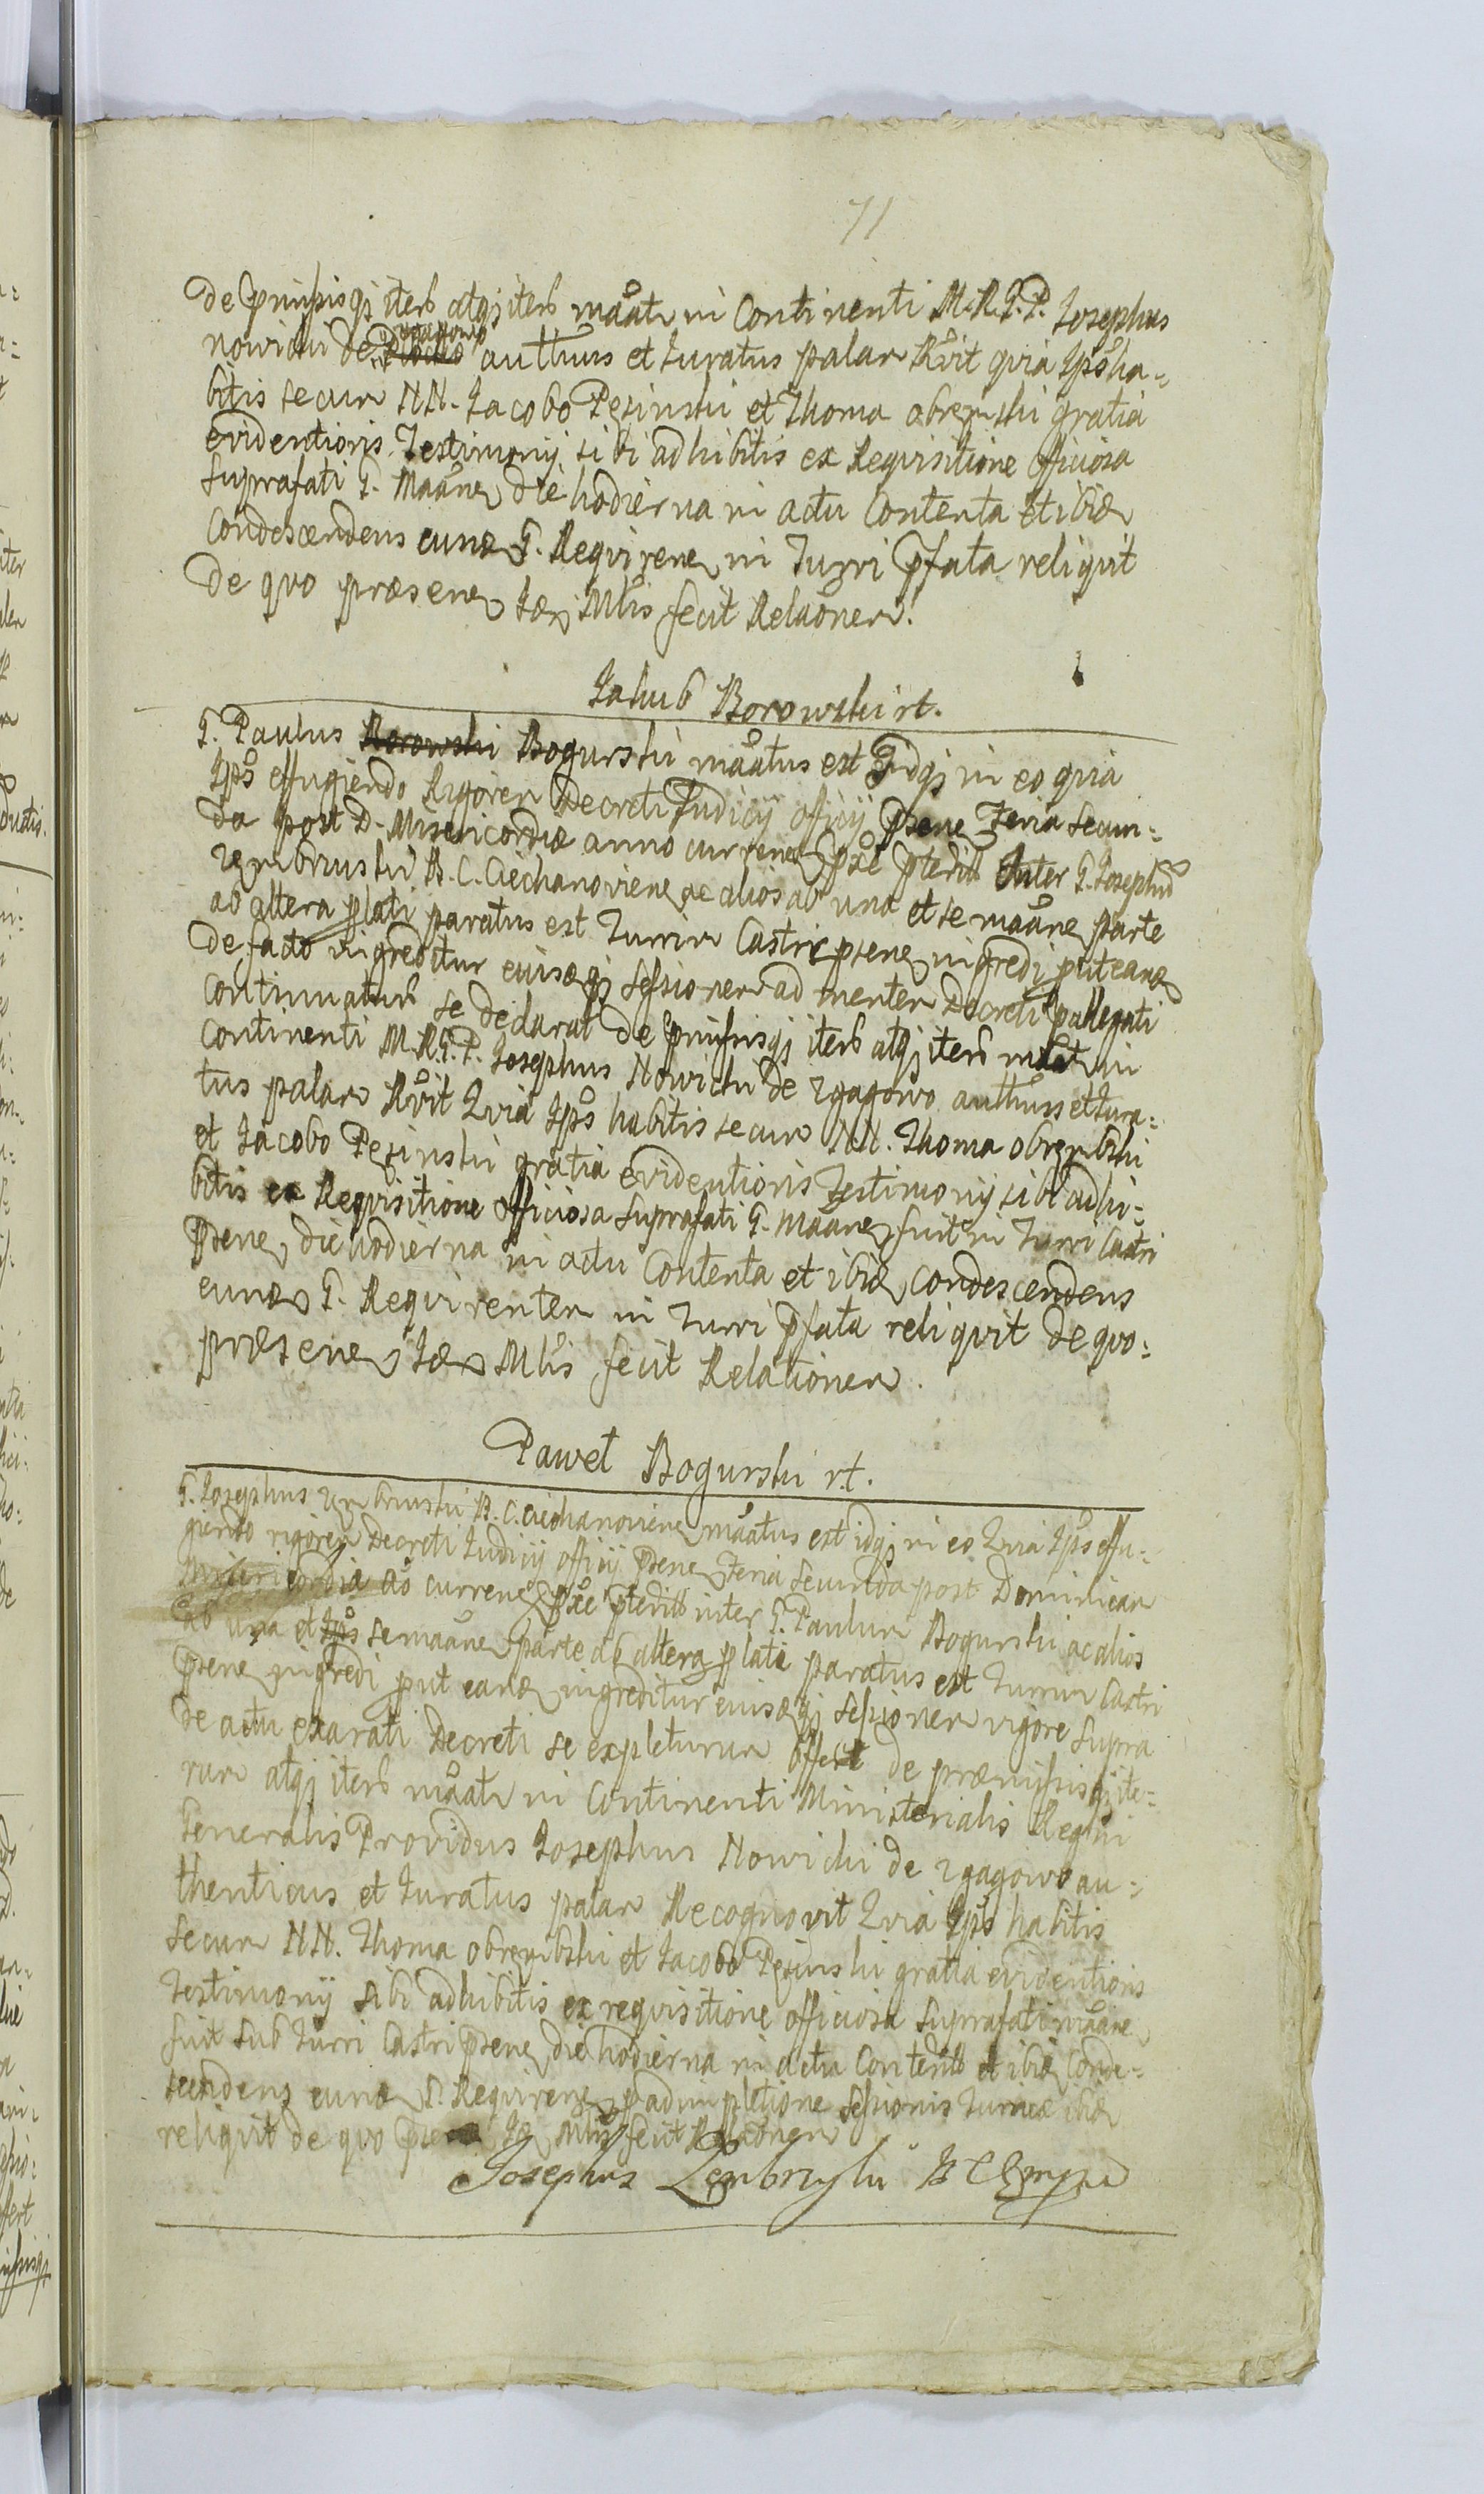 71
de pmissisqj iterb atqj iterb maatr in Continenti M. R. G. P. Josephus
nowicki de authcus et Juratus palam Rvit quia Ipse ha=
bitis secum NN. Jacobo Pesinski et Thoma obrembski gratia
evidentioris Testimonij sibi adhibitis ex Requisitione officiosa
Suprafati G. Maane die hodierna in actu Contenta et ibid
Condescendens eund G. Requirene in Turri pfata reliquit
de quo præsene Idem Mlis fecit Relaonem.
Jakub Borowski rt.
G. Paulus Borowski Bogurski maatus est Idqj in eo quia
Ipse effugiendo Rigorem Decreti Judicij officij psene Feria Secun=
da post D. Misericordiæ anno currene pxe pteriti Inter G. Josephum
Zembruski B. C. Ciechanoviene ac alios ab una et se maane parte
ab altera plati paratus est Turrim Castri psene ingredi puteand
de facto ingreditur eiusqj Sessionem ad mentem Decreti pallegati
Continuaturb se declarat de pmissisqj iterb atqj iterb maatr in
Continenti M. R. G. P. Josephus Nowicki de Zgagowo authcus et Jura=
tus palam Rvit Quia Ipse habitis secum NN. Thoma obrembski
et Jacobo Pesinski gratia evidentioris Testimonij sibi adhi=
bitis ex Requisitione officiosa Suprafati G. Maane fuit in Turri Castri
Psene die hodierna in actu Contenta et ibid condescendens
eund G. Requirentem in Turri pfata reliquit de quo=
præsene Idem Mlis fecit Relationem.
Paweł Bogurski r.t.
G. Josephus Zembruski B. C. Ciechanoviene maatus est idqj in eo Quia Ipse effu=
giendo rigorem Decreti Judicij officij Psene Feria Secunda post Dominicam
Misericordia ao currene pxe pteriti inter G. Paulum Bogurski ac alios
ab una et Ips se maane parte ab altera plati paratus est Turrim Castri
psene ingredi put eand ingreditur eiusqj Sessionem vigore Supra
de actu exarati Decreti se expleturum offert de præmissisqj ite=
rum atqj iterb maatr in Continenti Ministerialis Regni
Generalis Providus Josephus Nowicki de Zgagowo au=
thenticus et Juratus palam Recognovit Quia Ipse habitis
Secum NN. Thoma obrembski et Jacobo Pesinski gratia evidentioris
Testimonij sibi adhibitis ex requisitione officiosa Suprafati maane
fuit Sub Turri Castri psene die hodierna in actu Contentb et ibid Conde=
scendens eund G. Requirene padimpletione Sessionis Turris ibid
reliquit de quo Idem Mlis fecit Relaonem
Josephus Zembrzuski B C